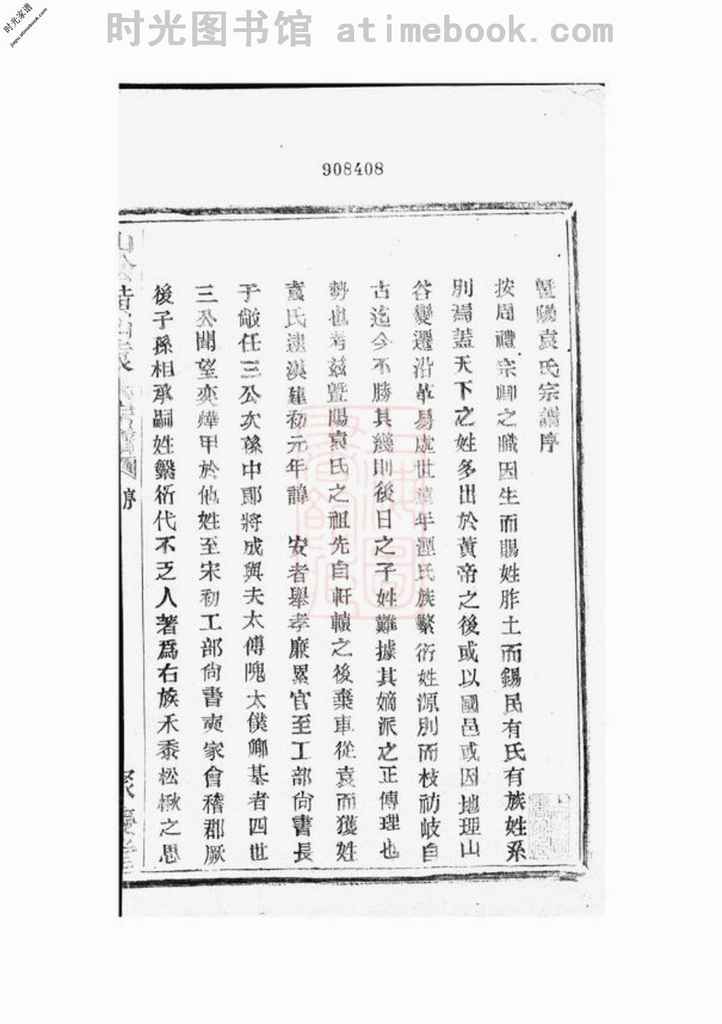 时光图书馆 atimebook.com
时光家谱
jiapu.atimebook.com
908408
暨陽袁氏宗譜序
按周禮宗卿之職因生而賜姓胙土而錫民有氏有族姓系
別焉蓋天下之姓多出於黃帝之後或以國邑或因地理山
谷變遷沿革易處世遠年湮氏族繁衍姓源別而枝初岐自
古迄今不勝其幾則後日之子姓難據其嫡派之正傳理也
勢也考茲暨陽袁氏之祖先自軒轅之後棄車從袁而獲姓
袁氏逮漢建初元年諱 安者舉孝廉累官至工部尙書長
子敞任三公次孫中郞將成與夫太傅隗太僕卿基者四世
三公聞望奕燁甲於他姓至宋初工部尙書奭家會稽郡厥
後子孫相承嗣姓繁衍代不乏人著爲右族禾黍松楸之思
山陰黃 袁 宗譜 序
聚慶堂